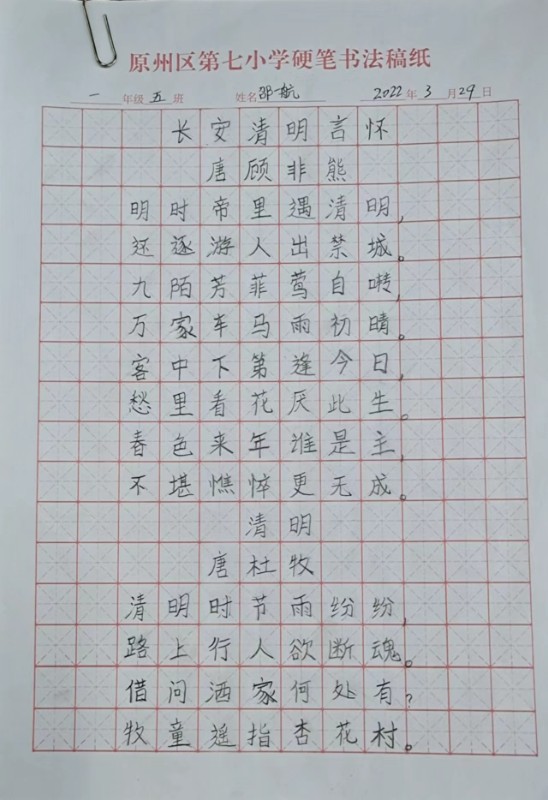 原州区第七小学硬笔书法稿纸
一 年级 五 班 姓名 邵一航 2022 年 3 月 29 日
长安清明言怀
唐顾非熊
明时帝里遇清明，
还逐游人出禁城。
九陌芳菲莺自啭，
万家车马雨初晴。
客中下第逢今日，
愁里看花厌此生。
春色来年谁是主，
不堪憔悴更无成。
清明
唐杜牧
清明时节雨纷纷，
路上行人欲断魂。
借问酒家何处有？
牧童遥指杏花村。